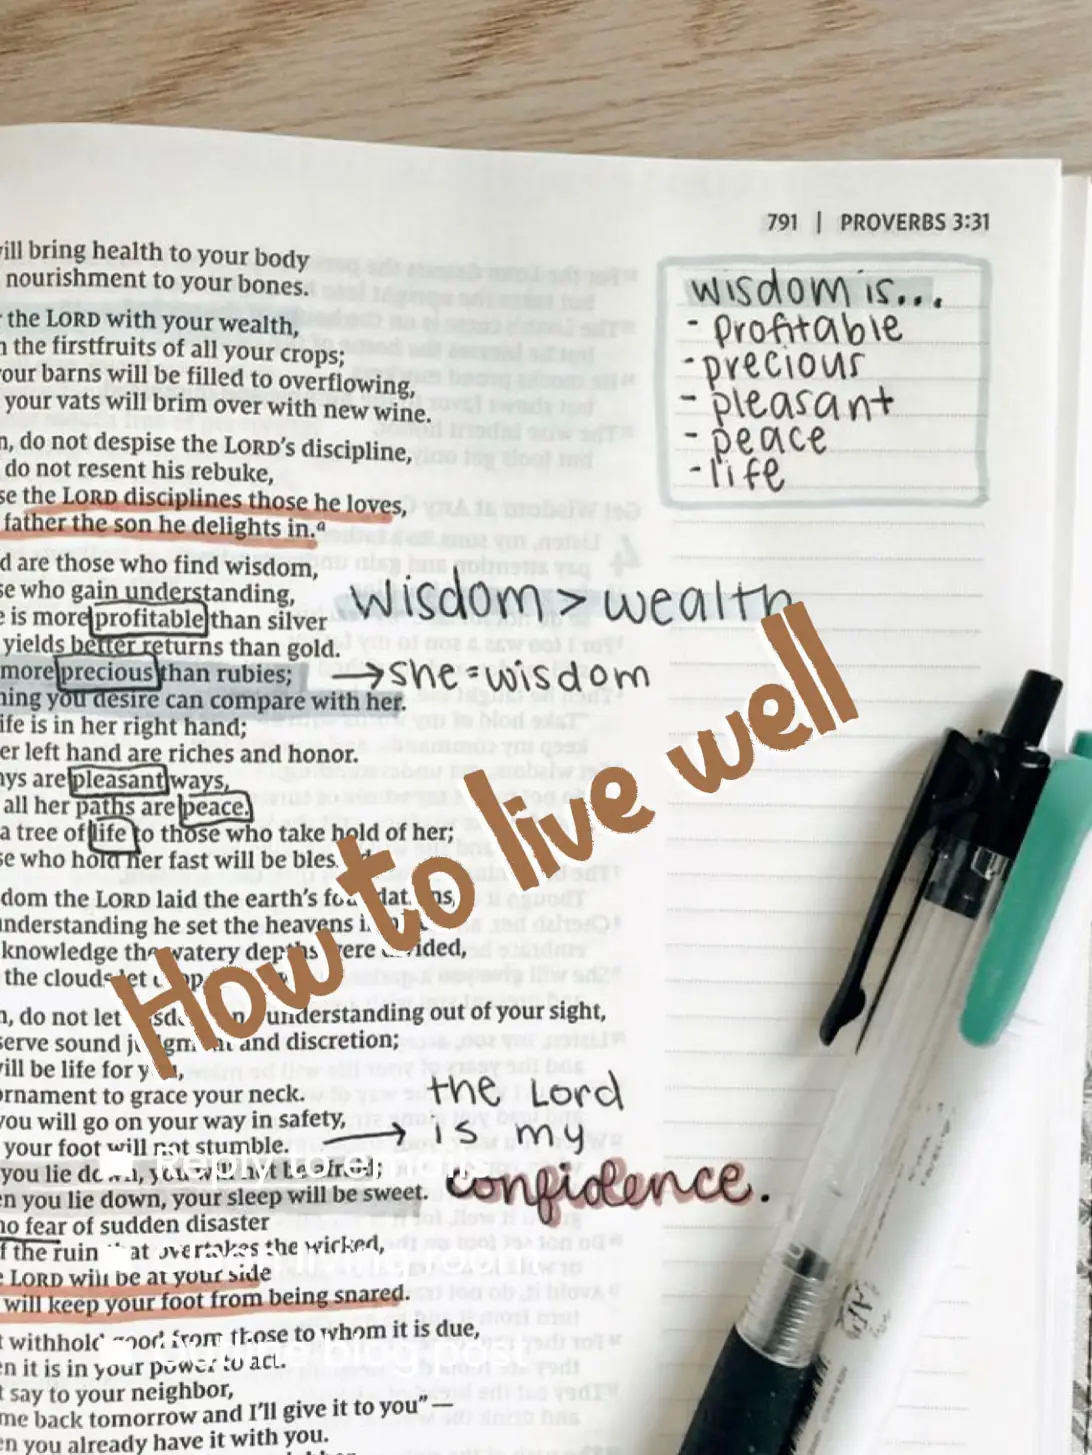 791 | PROVERBS 3:31
will bring health to your body
nourishment to your bones.
the LORD with your wealth,
the firstfruits of all your crops;
your barns will be filled to overflowing,
your vats will brim over with new wine.
do not despise the LORD's discipline,
do not resent his rebuke,
the LORD disciplines those he loves,
father the son he delights in.ᵃ
are those who find wisdom,
who gain understanding,
is more profitable than silver
yields better returns than gold.
more precious than rubies;
you desire can compare with her.
life is in her right hand;
her left hand are riches and honor.
are pleasant ways,
all her paths are peace.
a tree of life to those who take hold of her;
who hold her fast will be
the LORD laid the earth's
understanding he set the heavens
knowledge the watery depths were divided,
the clouds let
do not let understanding out of your sight,
sound and discretion;
will be life for
ornament to grace your neck.
you will go on your way in safety,
your foot will not stumble.
you lie
you lie down, your sleep will be sweet.
no fear of sudden disaster
the ruin overtakes the wicked,
LORD will be at your side
will keep your foot from being snared.
withhold good from those to whom it is due,
it is in your power to act.
say to your neighbor,
me back tomorrow and I'll give it to you"—
you already have it with you.
wisdom is...
- profitable
- precious
- pleasant
- peace
- life
wisdom > wealth
→ she = wisdom
→ the Lord
is my
confidence.
How to live well
Reply to